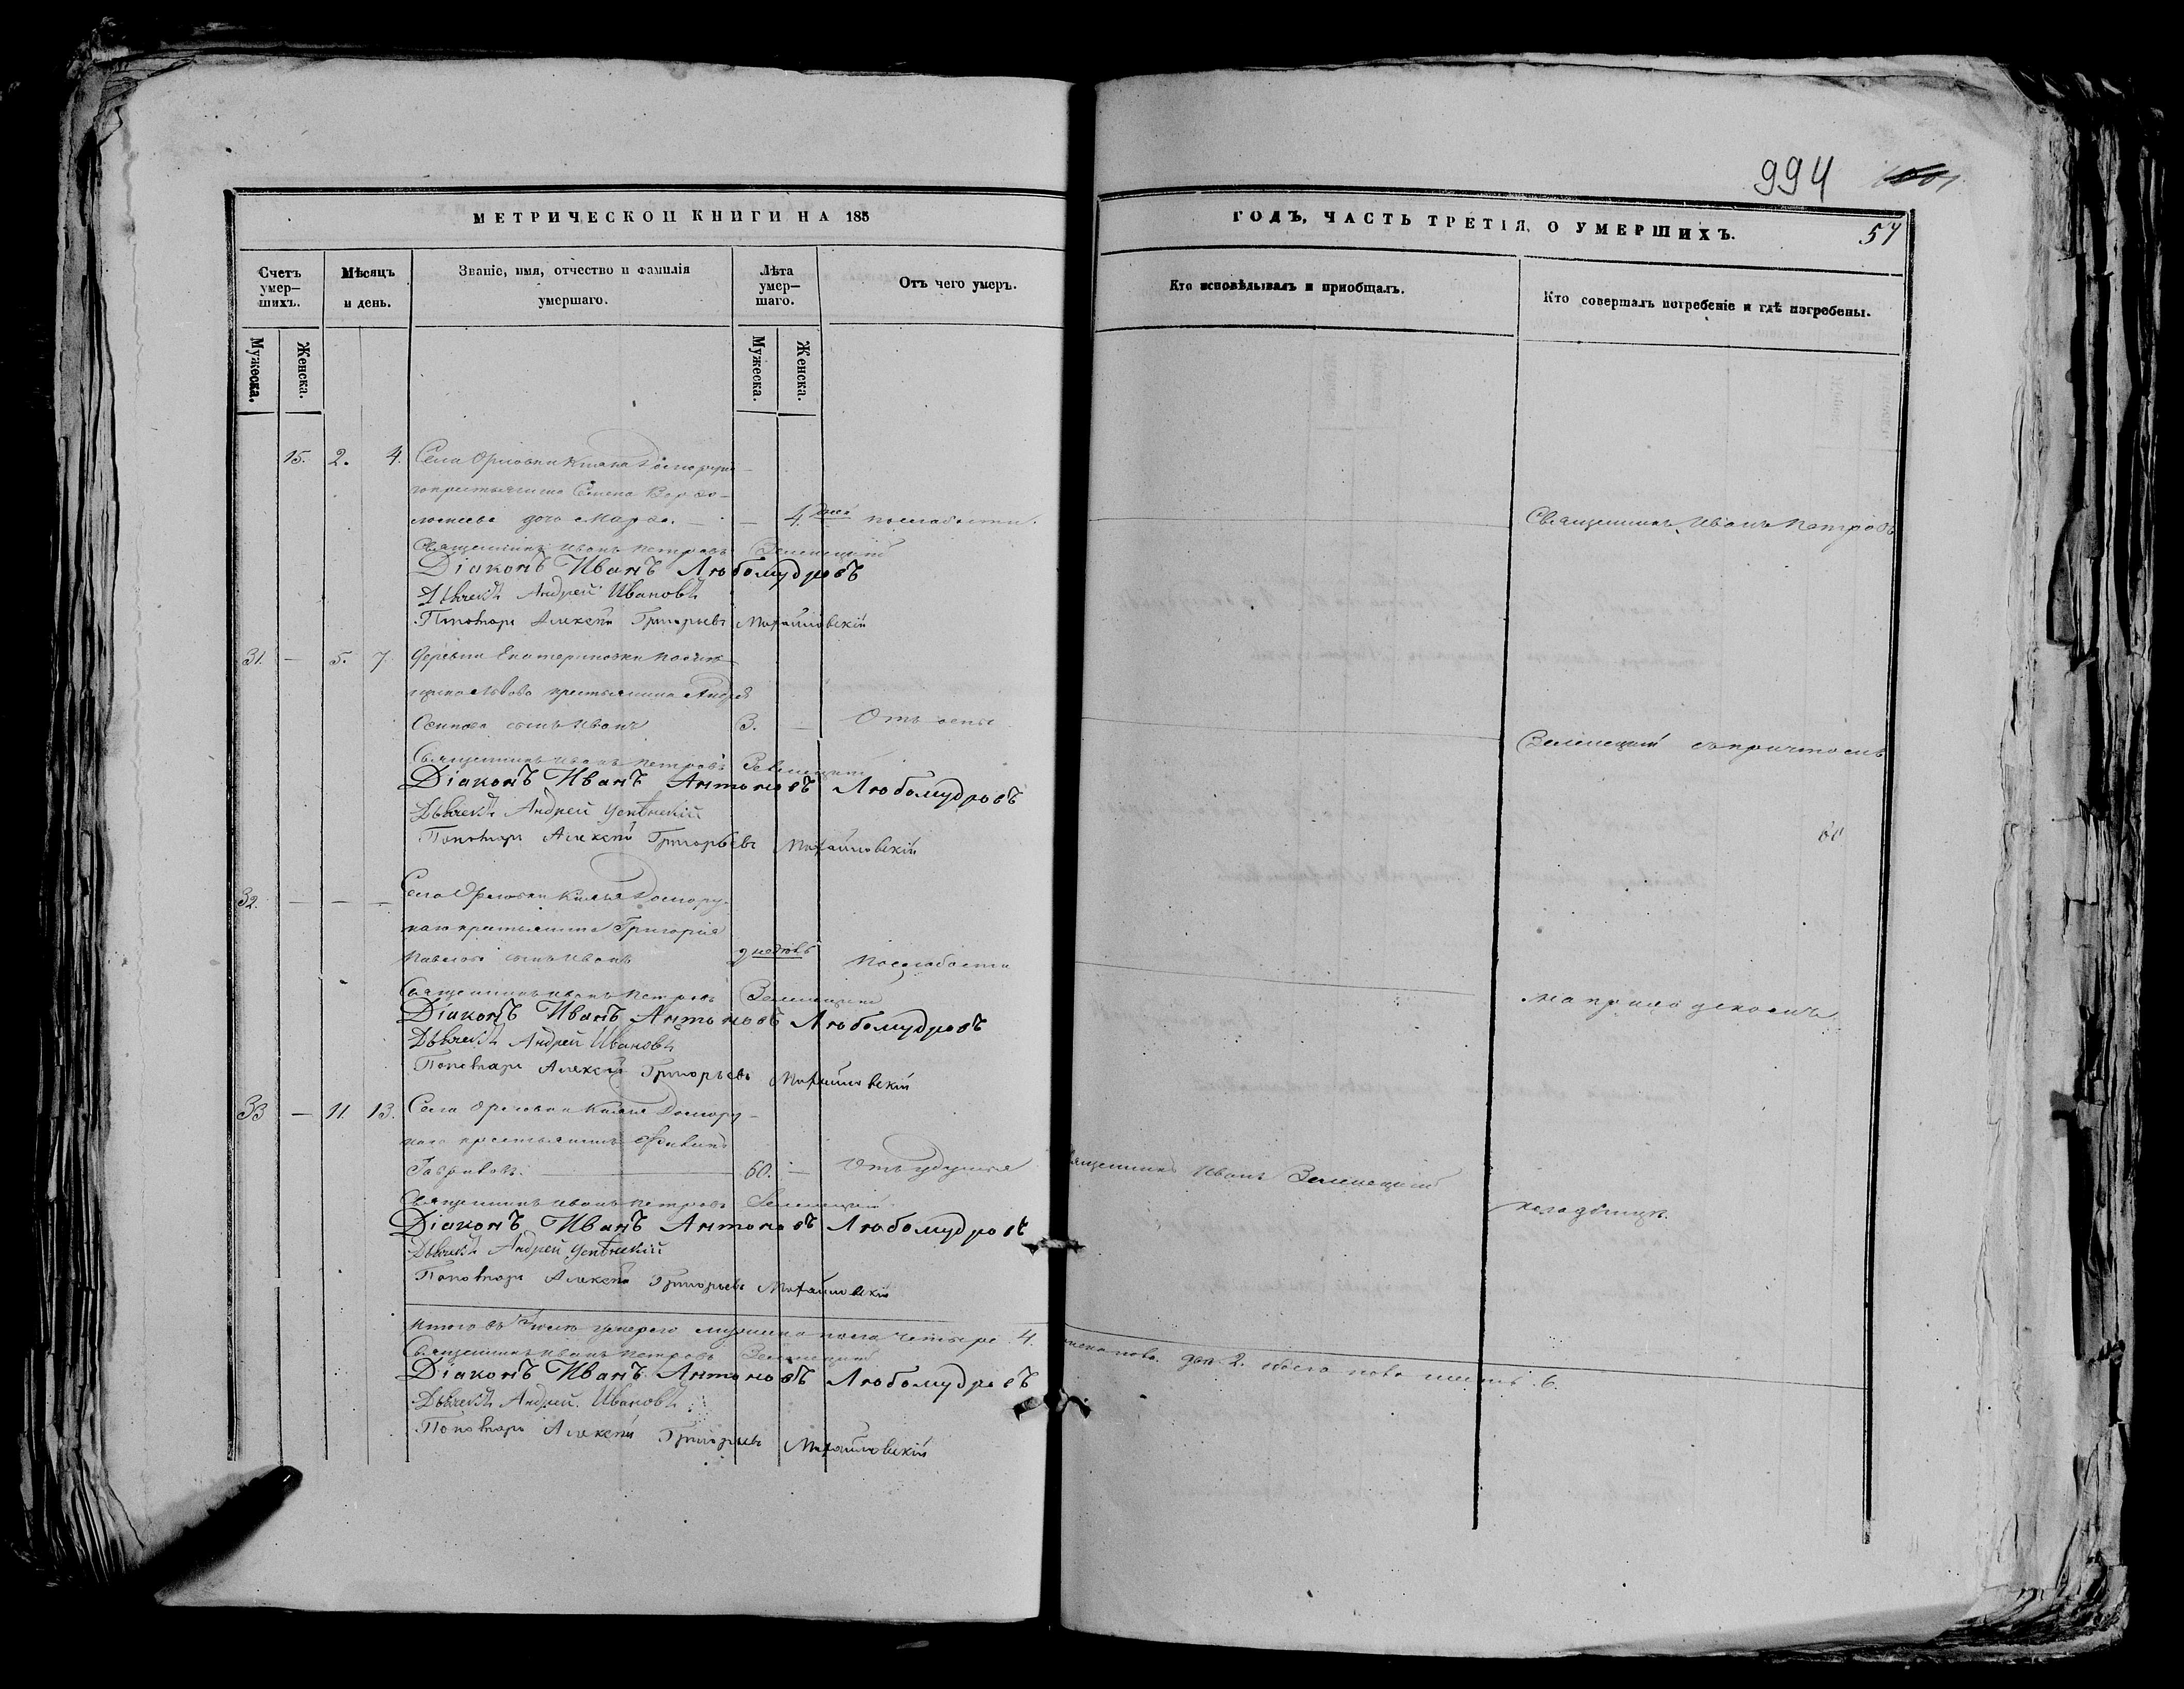 МЕТРИЧЕСКОЙ КНИГИ НА 185
Счетъ умер-
шихъ.
Мѣсяцъ
и день.
Званіе, имя, отчество и фамилія
умершаго.
Лѣта
умер-
шаго.
Отъ чего умеръ.
Мужеска.
Женска.
Мужеска.
Женска.
15. 2. 4. Села Орловки Князя
крестьянина Семена
дочь Марѳа. — — 4 дней
Священникъ Иванъ Петровъ Зеленецкій
Діаконъ Иванъ Любомудровъ
Дьячекъ Андрей Ивановъ
Пономарь Алексѣй Григорьевъ Михайловскій
31. — 5. 7. Деревни Екатериновки
крестьянина Андрея
Осипова сынъ Иванъ 3. — Отъ оспы
Священникъ Иванъ Петровъ Зеленецкій
Діаконъ Иванъ Антоновъ Любомудровъ
Дьячекъ Андрей
Пономарь Алексѣй Григорьевъ Михайловскій
32. — — — Села Орловки Князя Долгору-
каго крестьянина Григорія
Павлова сынъ Иванъ
Священникъ Иванъ Петровъ Зеленецкій
Діаконъ Иванъ Антоновъ Любомудровъ
Дьячекъ Андрей Ивановъ
Пономарь Алексѣй Григорьевъ Михайловскій
33 — 11. 13. Села Орловки Князя Долгору-
каго крестьянинъ
60. — Отъ удушья
Священникъ Иванъ Петровъ Зеленецкій
Діаконъ Иванъ Антоновъ Любомудровъ
Дьячекъ Андрей
Пономарь Алексѣй Григорьевъ Михайловскій
Итого въ умерло мужеска пола четыре 4.
Священникъ Иванъ Петровъ Зеленецкій
Діаконъ Иванъ Антоновъ Любомудровъ
Дьячекъ Андрей Ивановъ
Пономарь Алексѣй Григорьевъ Михайловскій
994
ГОДЪ, ЧАСТЬ ТРЕТІЯ, О УМЕРШИХЪ.
57
Кто исповѣдывалъ и пріобщалъ.
Кто совершалъ погребеніе и гдѣ погребены.
Священникъ Иванъ Петровъ
Зеленецкій съ причтомъ
на приходскомъ
Иванъ Зеленецкій
кладбищѣ.
два 2. обоего пола шесть 6.